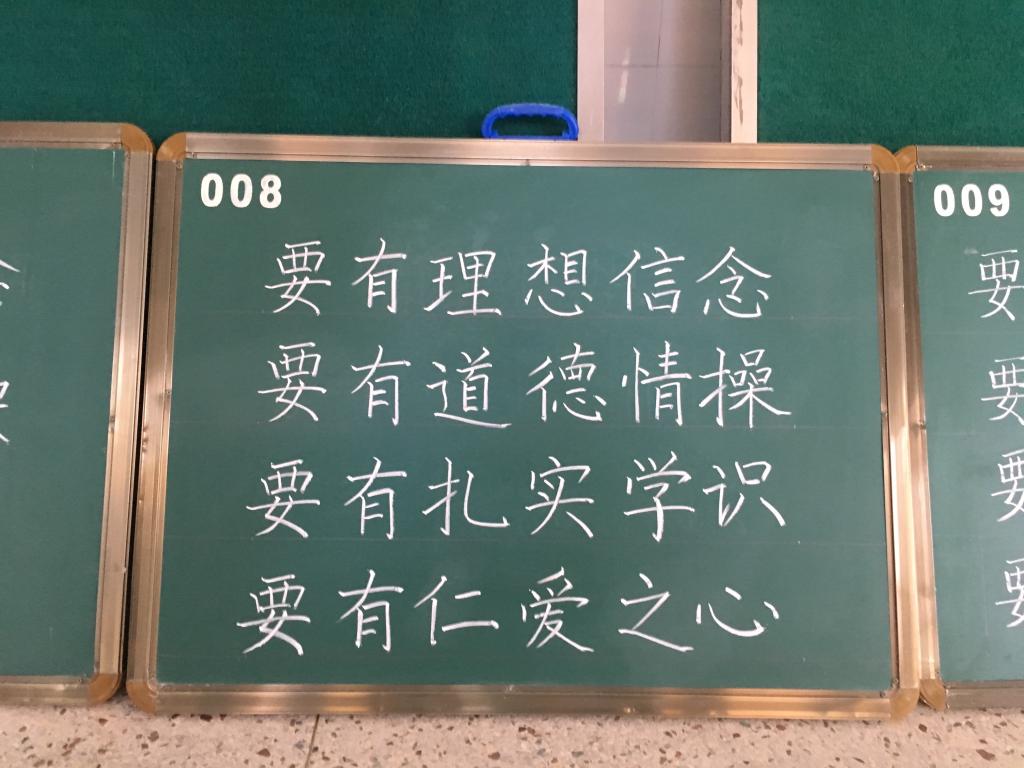 008
要有理想信念
要有道德情操
要有扎实学识
要有仁爱之心
009
要
要
要
要